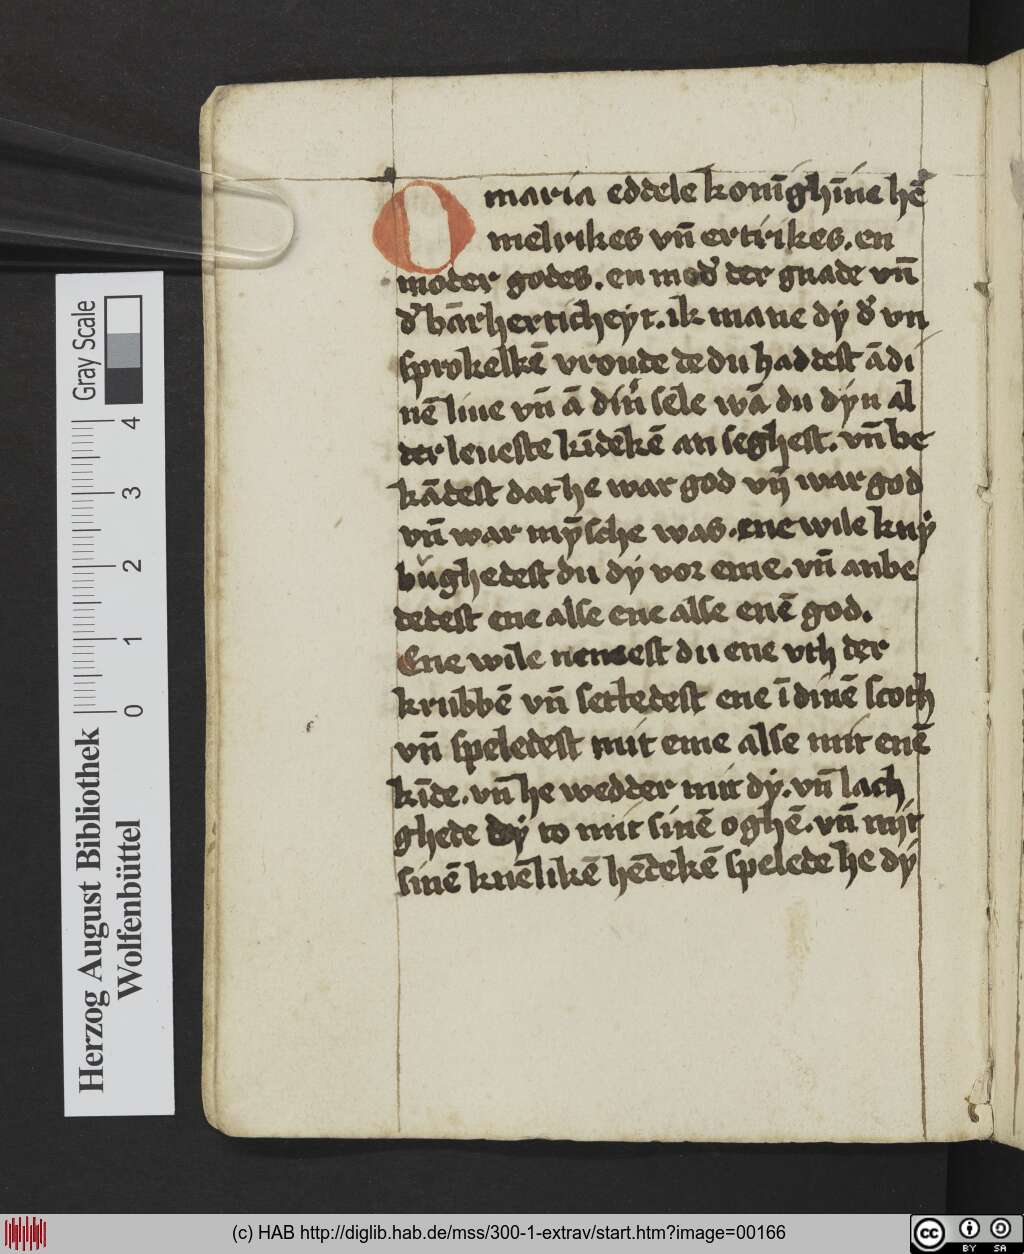 O maria eddele konīghīne hē
melrikes vn̄ ertrikes. en
moder godes. en mod' der gnade vn̄
d' bārherticheyt. ik mane dy d' vn
sprokelkē vroude de du haddest ā di
nē liue vn̄ ā din' sele wā du dyn al
der leueste kīdekē an seghest. vn̄ be
kādest dat he war god vn̄ war god
vn̄ war mȳsche was. ene wile kny
bughedest du dy vor eme. vn̄ anbe
dedest ene alse ene alse enē god.
Ene wile nemest du ene vth der
krubbē vn̄ settedest ene ī dinē scoth
vn̄ speledest mit eme alse mit enē
kīde. vn̄ he wedder mit dy. vn̄ lach
ghede dy to mit sinē oghē. vn̄ mit
sinē knēlikē hēdekē spelede he dy
Gray Scale
4 3 2 1 0
Herzog August Bibliothek
Wolfenbüttel
(c) HAB http://diglib.hab.de/mss/300-1-extrav/start.htm?image=00166
cc BY SA